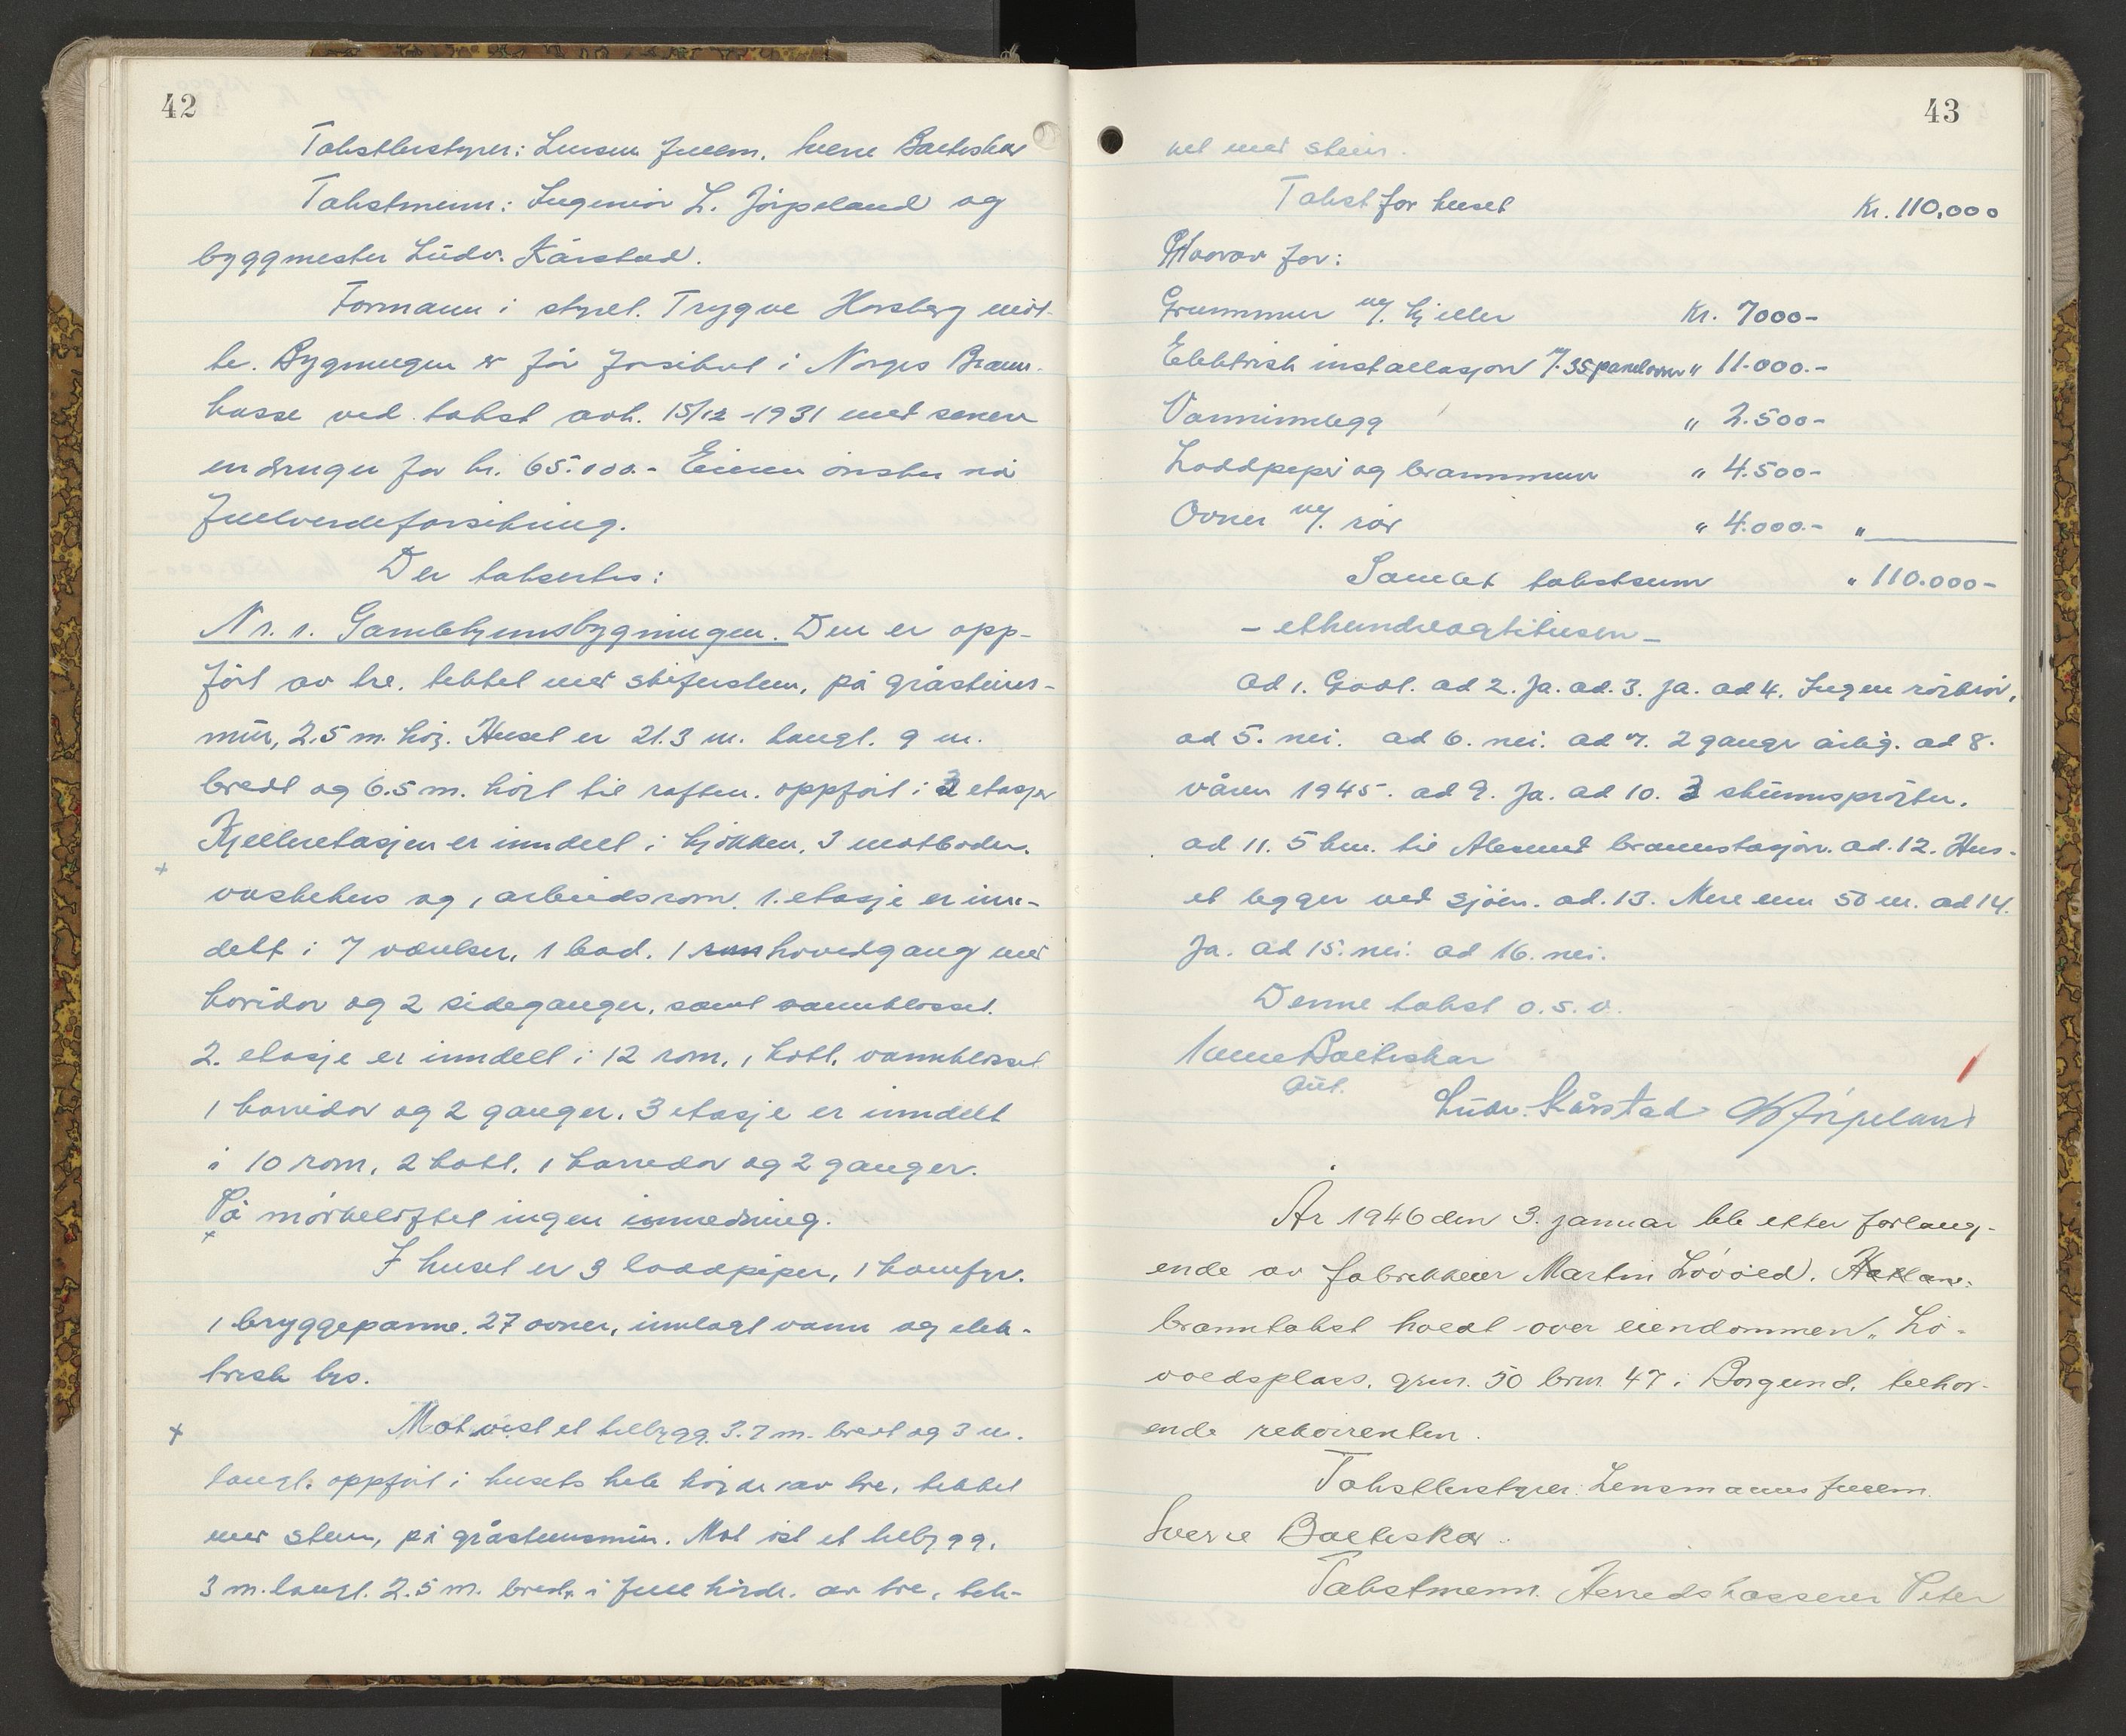 42
Takstbestyrer: Lensm. fullm. Sverre Balteskar
Takstmenn: Ingeniør L. Jörpeland og
byggmester Lüdv. Kårstad.
Formann i styret. Trygve Horsberg möt-
te. Bygningen er för forsikret i Norges Brann-
kasse ved takst avh. 15/12-1931 med senere
endringer for kr. 65.000.- Eieren önsker nå
fullverdiforsikring.
Der takseertes:
Nr. 1. Gamlehjemsbygningen. Den er opp-
fört av tre, tekket med skiferstein, på gråsteins-
mür, 2.5 m. höi. Huset er 21.3 m. langt. 9 m.
bredt og 6.5 m. höit til raften. oppfört i 3 etasjer
Kjelleretasjen er inndelt i kjökken, 3 matboder,
vaskehus og 1 arbeidsrom. 1. etasje er inn-
delt i 7 værelser, 1 bad, 1 hovedgang med
koridor og 2 sideganger, samt vannklosset.
2. etasje er inndelt i 12 rom, 1 kott, vannklosset
1 korridor og 2 ganger. 3 etasje er inndelt
i 10 rom, 2 kott, 1 korredor og 2 ganger.
På mörkeloftet ingen innredning.
I huset er 3 loddpiper, 1 komfyr.
1 bryggepanne. 27 ovner, innlagt vann og elek-
trisk lys.
Mot vest et tilbygg 3.7 m. bredt og 3 m.
langt. oppfört i husets hele höide av tre, tekket
med stein, på gråsteinsmür. Mot öst et tilbygg,
3 m. langt. 2.5 m. bredt, i full höide. av tre, tek-
43
ket med stein.
Takst for huset Kr. 110.000
Hvorav for:
Grunnmur m/. kjeller Kr. 7000-
Elektrisk installasjon m/. 35 panelovner " 11.000.-
Vanninnlegg " 2.500-
Loddpiper og brannmur " 4.500-
Ovner m/. rör " 4.000.- "
Samlet takstsum " 110.000-
- etthundreogtitusen -
ad 1. Godt. ad 2. Ja. ad. 3. Ja. ad 4. Ingen
ad 5. nei. ad 6. nei. ad 7. 2 ganger årlig. ad 8.
våren 1945. ad 9. Ja. ad 10. 3
ad 11. 5 km. til Alesund brannstasjon. ad. 12. Hus-
et ligger ved sjöen. ad. 13. Mere enn 50 m. ad 14.
Ja. ad 15. nei. ad 16. nei.
Denne takst o.s.v.
Sverre Balteskar
Lüdv. Kårstad L Jörpeland
År 1946 den 3. januar ble etter forlang-
ende av fabrikkeier Martin Lövold, Hatlane:
branntakst holdt over eiendommen „Lö-
voldsplass, grnr. 50 brnr. 47 i Borgund, tilhör-
ende rekvirenten.
Takstbestyrer: Lensmanns fullm.
Sverre Balteskar.
Takstmenn. Herredskasserer Peter